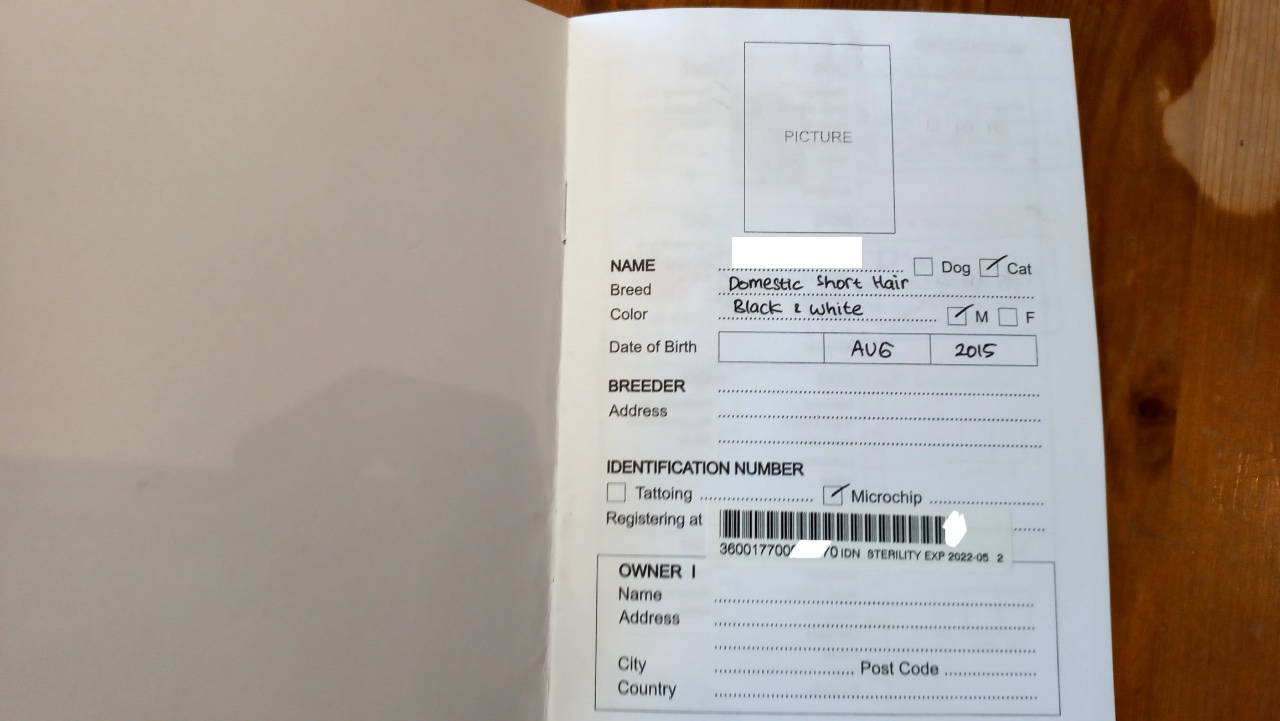 PICTURE
NAME Dog Cat
Breed Domestic Short Hair
Color Black & White M F
Date of Birth AUG 2015
BREEDER
Address
IDENTIFICATION NUMBER
Tattoing Microchip
Registering at
IDN STERILITY EXP 2022-05 2
OWNER I
Name
Address
City Post Code
Country